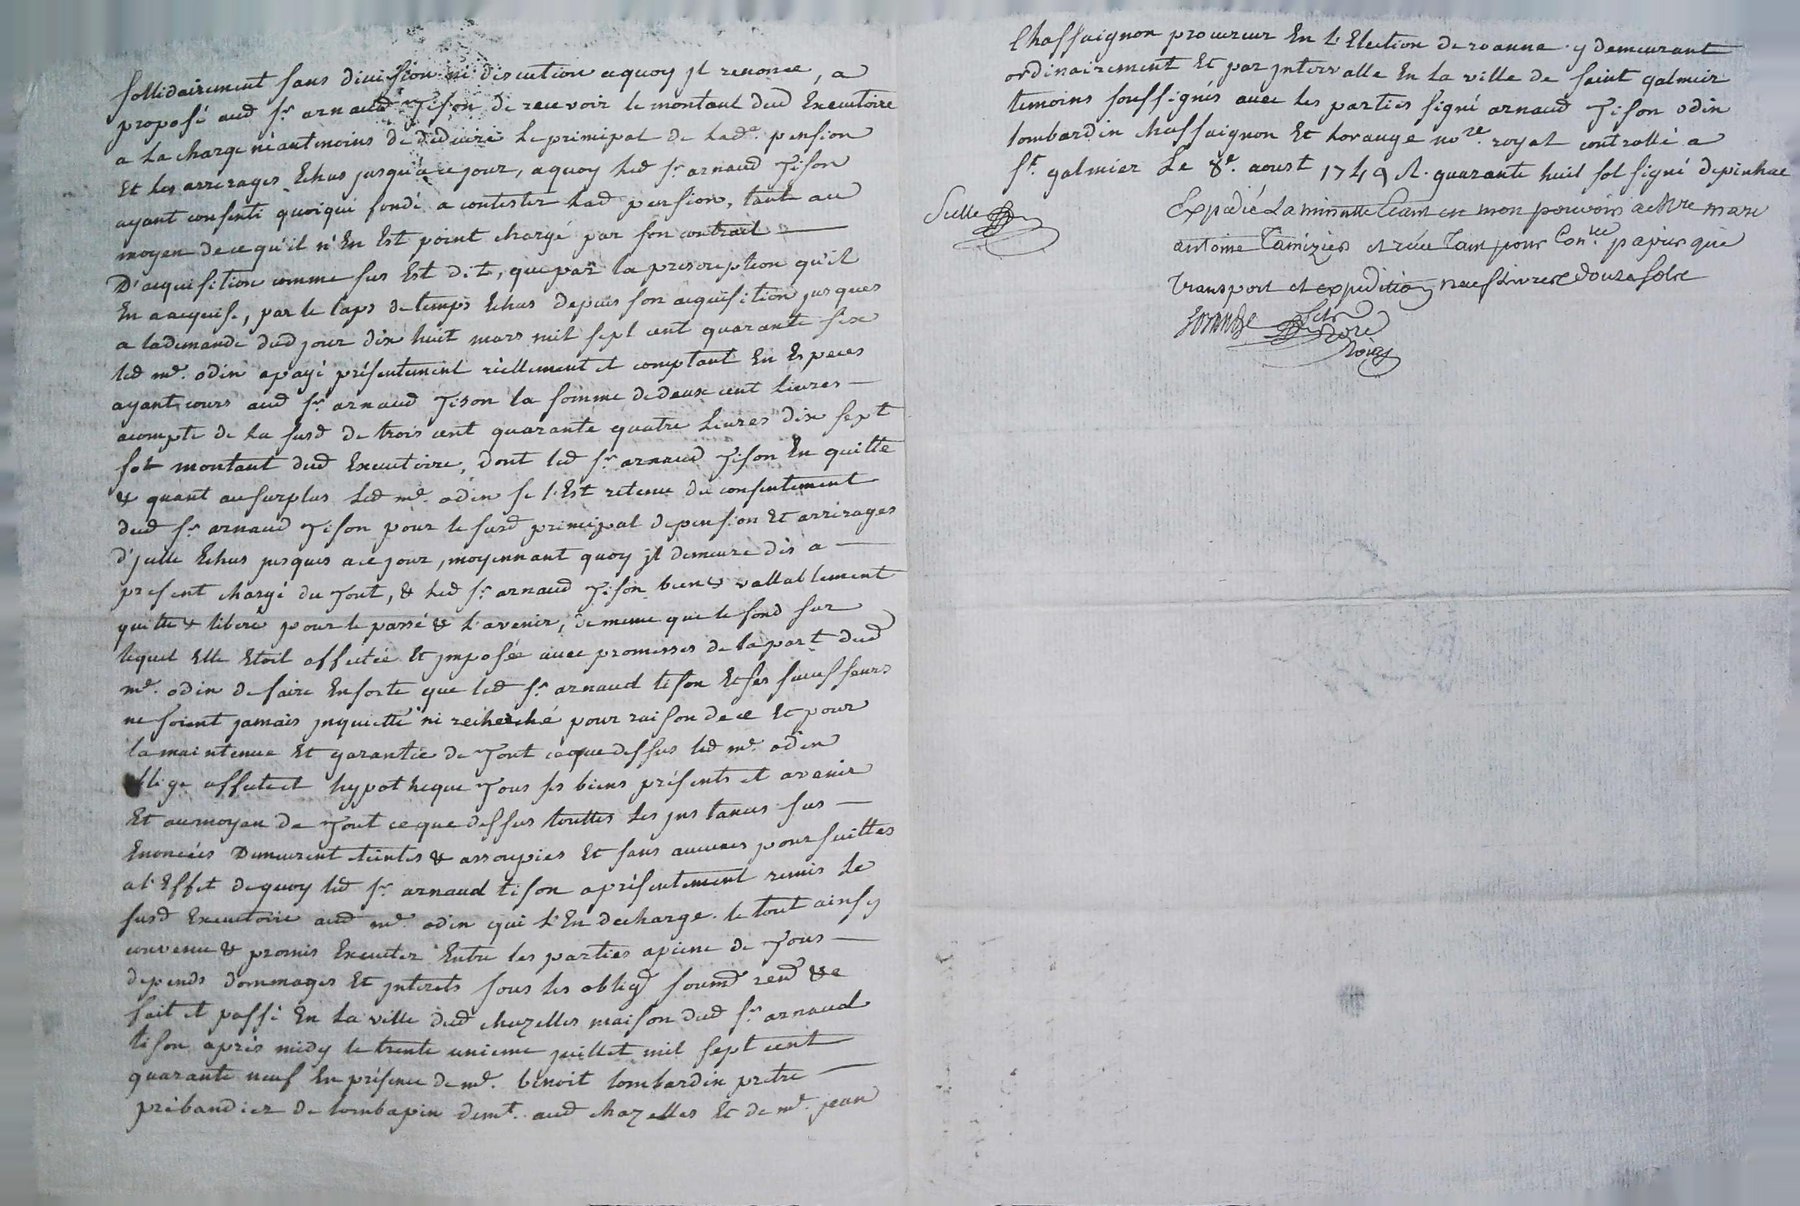 sollidairement sans division ni discution aquoy jl renonce, a
proposé aud sr. arnaud Tison de recevoir le montant dud Executoire
a la charge néantmoins de deduire le principal de lade. pension
Et les arrerages Echus jusqu'a ce jour, aquoy led sr. arnaud Tison
ayant consenti quoique fondé a contester lad pension, tant au
moyen de ce qu'il n'En Est point chargé par son contrait
D'acquisition comme sus Est dit, que par la prescription qu'il
En a acquise, par le laps de temps Echus depuis son acquisition jusques
a la demande dud jour dix huit mars mil sept cent quarante six
led me. odin a payé présentement réellement et comptant En Especes
ayant cours aud sr. arnaud Tison la somme de deux cent livres
acompte de la susd de trois cent quarante quatre livres dix sept
sol montant dud Executoire, dont led sr. arnaud Tison En quitte
& quant au surplus led me. odin se l'Est retenu du consentement
dud sr. arnaud Tison pour le susd principal de pension Et arrerages
d'jcelle Echus jusques a ce jour, moyennant quoy jl demeure dès a
present chargé du Tout, & led sr. arnaud Tison bien & vallablement
quitte & libere pour le passé & l'avenir, de meme que le fond sur
lequel Elle Etoit affectée Et jmposée avec promesses de la part dud
me. odin de faire Ensorte que led sr. arnaud tison Et ses successeurs
ne soient jamais jnquietté ni recherché pour raison de ce Et pour
la maintenue Et garantie de Tout ce que dessus led me. odin
oblige affecte et hypotheque Tous ses biens présents et avenir
Et au moyen de Tout ce que dessus touttes les jnstances sus
Enoncées Demeurent éteintes & assoupies Et sans aucunes poursuittes
a l'Effet de quoy led sr. arnaud tison a présentement remis le
susd Executoire aud me. odin qui l'En decharge. le tout ainsy
convenu & promis Executer Entre les parties a peine de Tous
depends dommages Et jnterets sous les obligd soumd rend &c
fait et passé En la ville dud chazelles maison dud sr. arnaud
tison après midy le trente unieme juillet mil sept cent
quarante neuf En présence de me. benoit lombardin pretre
prébandier de lombapin demt. aud chazelles Et de me. jean
Chassaignon procureur En l'Election de roanne y demeurant
ordinairement Et par jntervalle En la ville de saint galmier
temoins soussignés avec les parties signé arnaud Tison odin
lombardin chassaignon Et Lorange nore. royal controllé a
st. galmier Le 8e. aoust 1749 R. quarante huit sol signé depinhac
Expedié La minutte Etant en mon pouvoir a Mre marc
antoine Tamizier et reçu tant pour Conlle papier que
transport et expedition neuf Livres Douze sols
Lorange